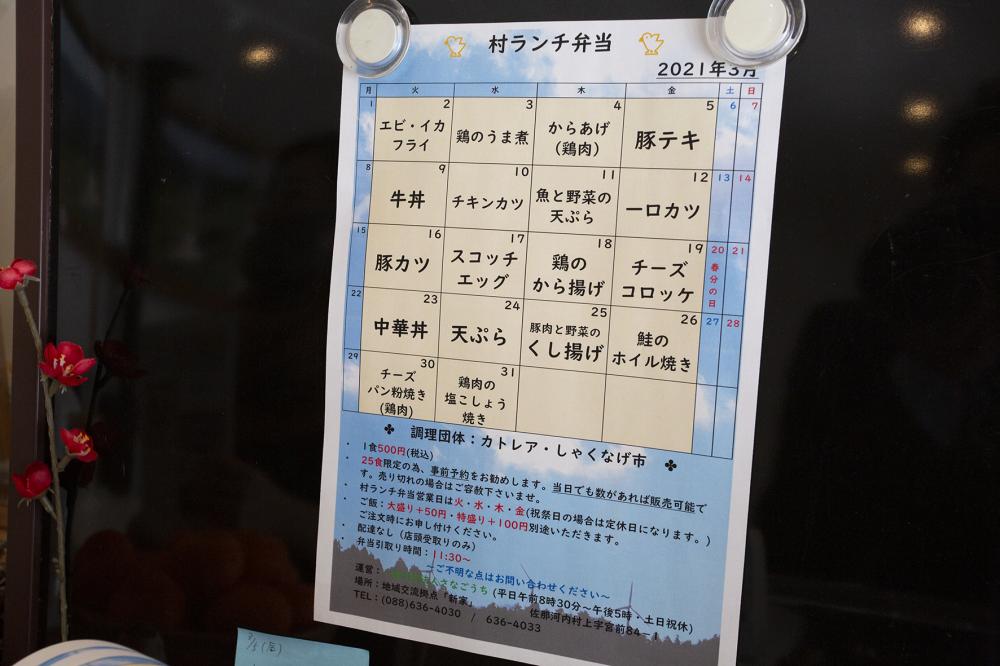 村ランチ弁当
2021年3月
月 火 水 木 金 土 日
1 2 3 4 5 6 7
エビ・イカ
フライ
鶏のうま煮
からあげ
(鶏肉)
豚テキ
8 9 10 11 12 13 14
牛丼
チキンカツ
魚と野菜の
天ぷら
一口カツ
15 16 17 18 19 20 21
豚カツ
スコッチ
エッグ
鶏の
から揚げ
チーズ
コロッケ
春分の日
22 23 24 25 26 27 28
中華丼
天ぷら
豚肉と野菜の
くし揚げ
鮭の
ホイル焼き
29 30 31
チーズ
パン粉焼き
(鶏肉)
鶏肉の
塩こしょう
焼き
♣ 調理団体：カトレア・しゃくなげ市 ♣
・ 1食500円(税込)
・ 25食限定の為、事前予約をお勧めします。当日でも数があれば販売可能で
す。売り切れの場合はご容赦下さいませ。
・ 村ランチ弁当営業日は火・水・木・金(祝祭日の場合は定休日になります。)
・ ご飯：大盛り＋50円・特盛り＋100円別途いただきます。
ご注文時にお申し付けください。
・ 配達なし（店頭受取りのみ）
・ 弁当引取り時間：11:30～
～ご不明な点はお問い合わせください～
運営： さなごうち (平日午前8時30分～午後5時・土日祝休)
場所：地域交流拠点「新家」 佐那河内村上字宮前84－1
TEL：(088)636-4030 / 636-4033
3/5(金)